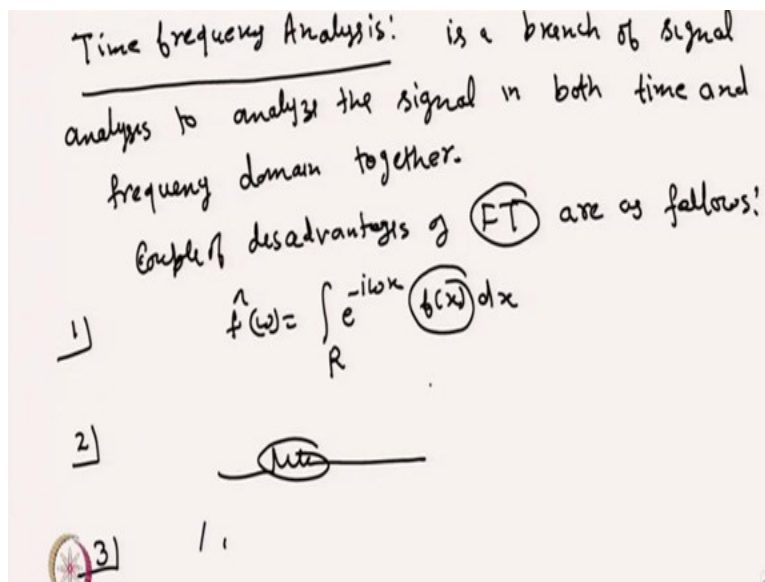 Time frequency Analysis: is a branch of signal
analysis to analyze the signal in both time and
frequency domain together.
Couple of desadvantages of FT are as follows:
1] f̂(ω)= ∫_R e^{-iωx} f(x) dx
2]
3]